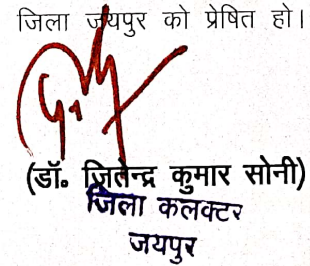 जिला जयपुर को प्रेषित हो।
(डॉ. जितेन्द्र कुमार सोनी)
जिला कलक्टर
जयपुर